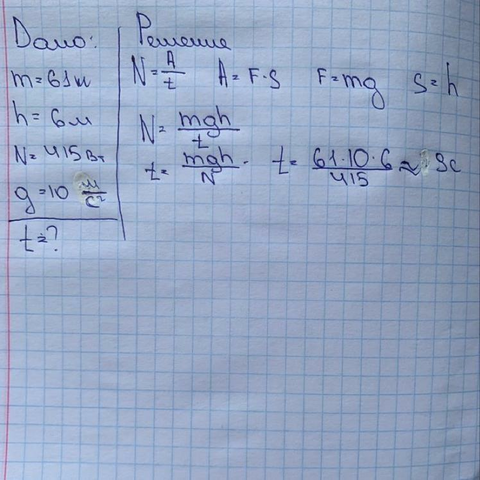 Дано:
m=61кг
h=6м
N=415Вт
g=10 м/с²
t=?
Решение
N=A/t A=F·S F=mg S=h
N=mgh/t
t=mgh/N. t=61·10·6/415≈9с